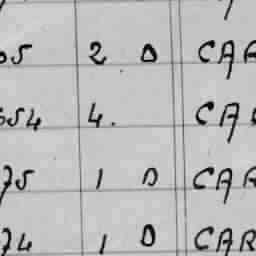 05 2 0 CAR
654 4. CA
75 1 0 CAR
74 1 0 CAR